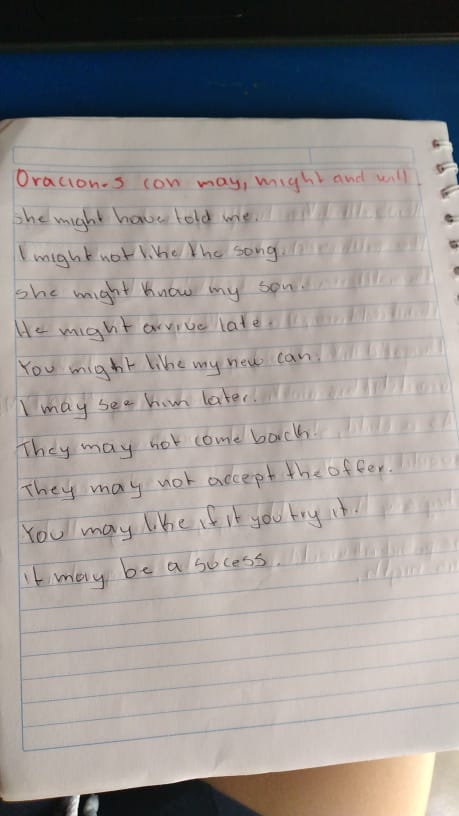 Oraciones con may, might and will
She might have told me.
I might not like the song.
She might know my son.
He might arrive late.
You might like my new can.
I may see him later.
They may not come back.
They may not accept the offer.
You may like if it you try it.
it may be a sucess.